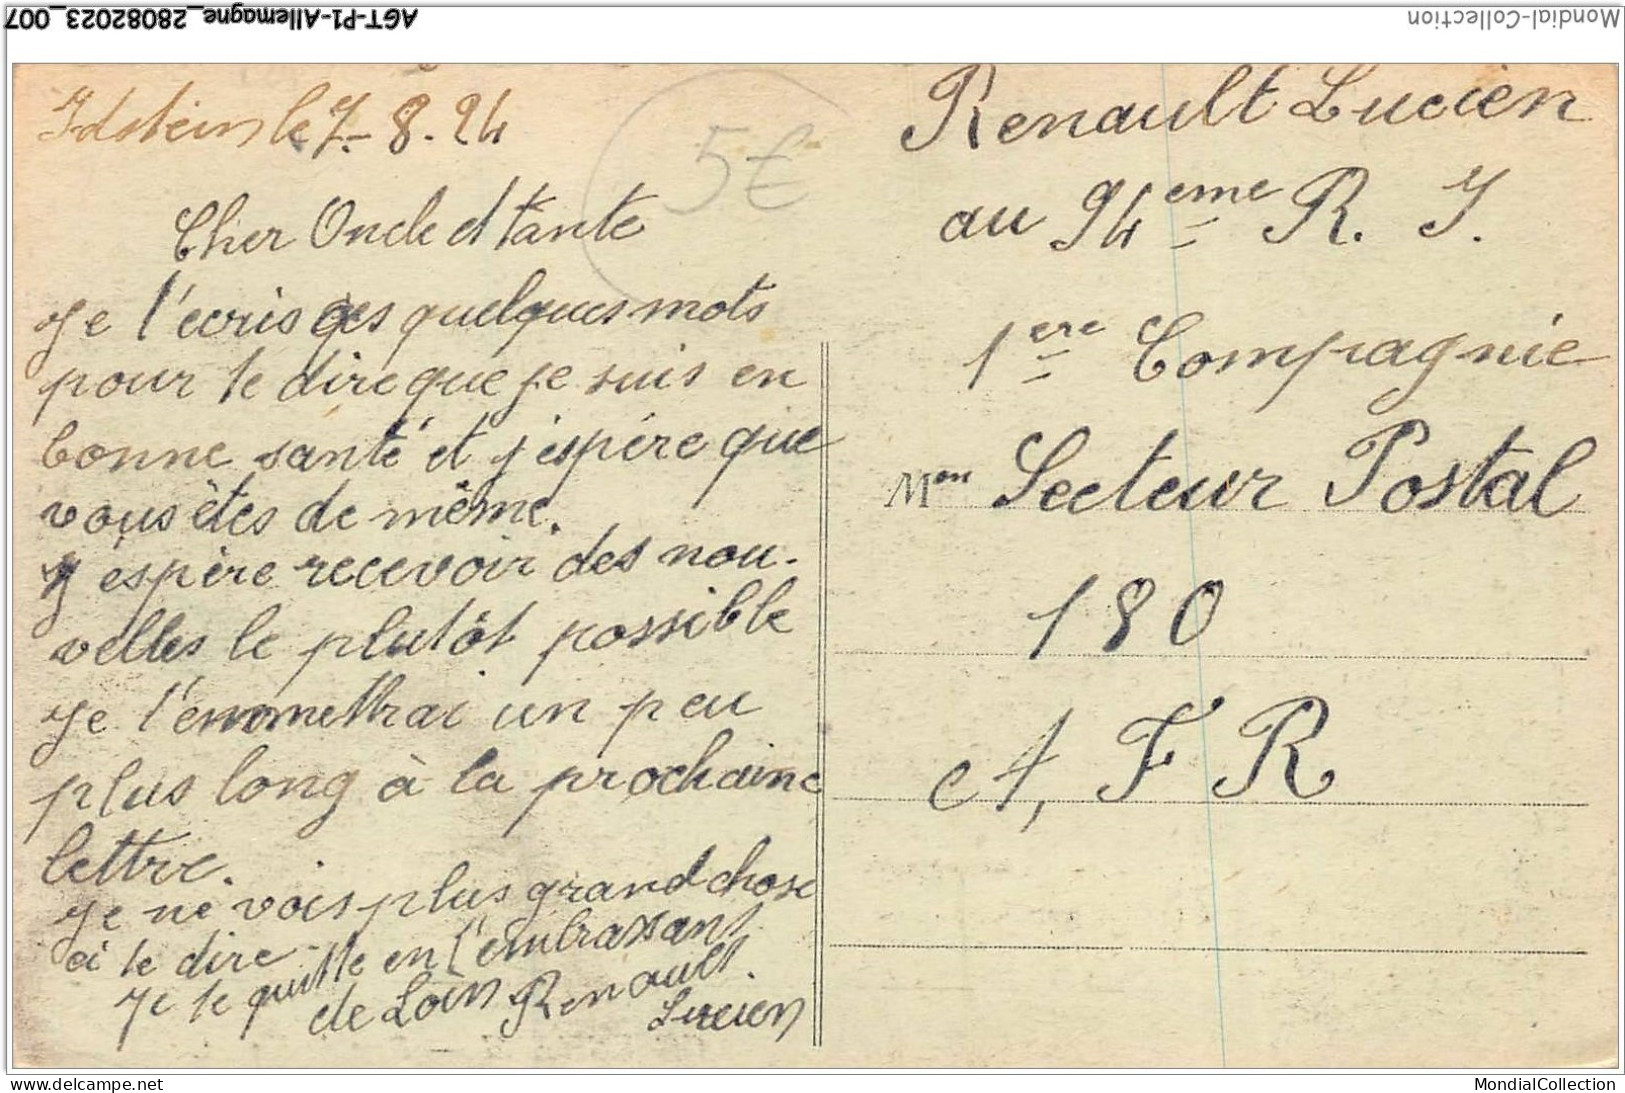 AGT-P1-Allemagne_28082023_007
Mondial-Collection
Idstein le 7-8.24
5€
Cher Oncle et tante
Je t'écris ces quelques mots
pour te dire que je suis en
bonne santé et j'espére que
vous ètes de mème.
J espère recevoir des nou-
velles le plutôt possible
Je t'en mettrai un peu
plus long à la prochaine
lettre.
Je ne vois plus grand chose
à te dire
Je te quitte en t'embrassant
de Loin Renault
Lucien
Renault Lucien
au 94eme R. I.
1ere Compagnie
Mon Secteur Postal
180
A, F R
www.delcampe.net
MondialCollection